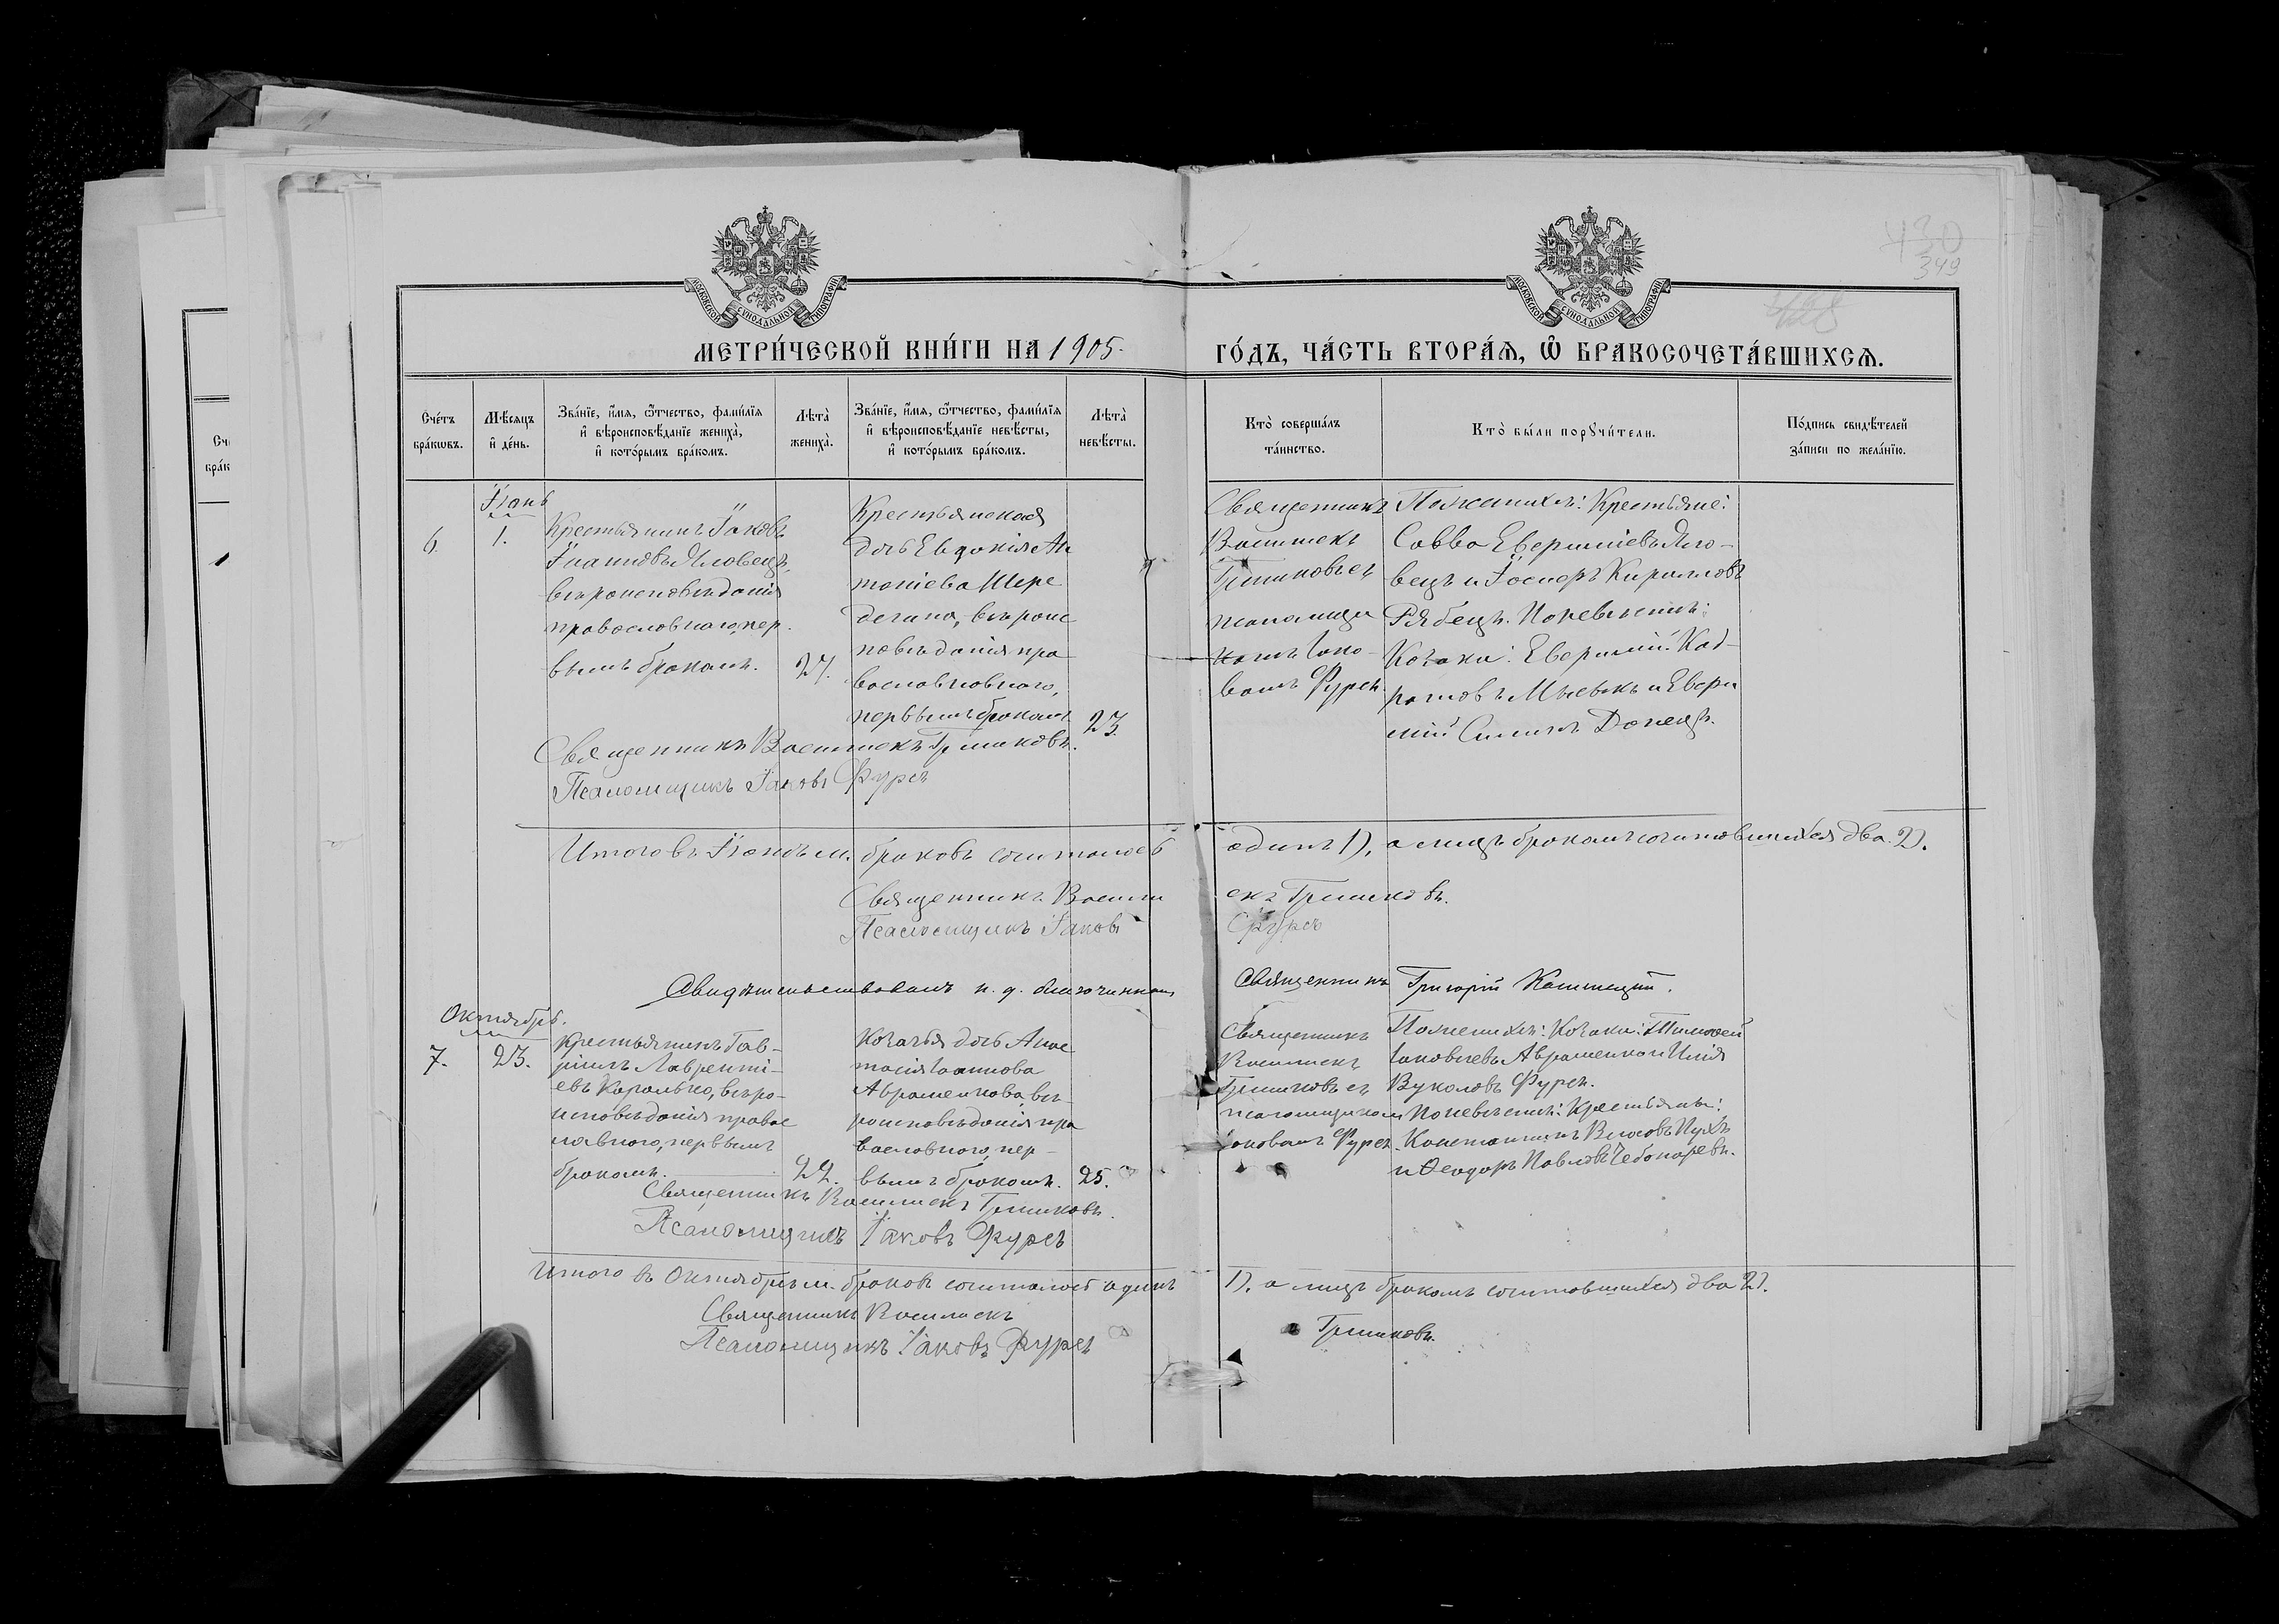 430
349
МОСКОВСКОЙ СѴНОДАЛЬНОЙ ТИПОГРАФІИ
МОСКОВСКОЙ СѴНОДАЛЬНОЙ ТИПОГРАФІИ
МЕТРИ́ЧЕСКОЙ КНИ́ГИ НА 1905. ГО́ДЪ, ЧА́СТЬ ВТОРА́Ѧ, Ѽ БРАКОСОЧЕТА́ВШИХСѦ.
Сче́тъ
бра́кѡвъ.
Мѣ́сѧцъ
и҆ де́нь.
Зва́нїе, и҆́мѧ, ѻ҆́тчество, фами́лїѧ
и҆ вѣроисповѣ́данїе жениха̀,
и҆ кото́рымъ бра́комъ.
Лѣта̀
жениха̀.
Зва́нїе, и҆́мѧ, ѻ҆́тчество, фами́лїѧ
и҆ вѣроисповѣ́данїе невѣ́сты,
и҆ кото́рымъ бра́комъ.
Лѣта̀
невѣ́сты.
Кто̀ соверша́лъ
та́инство.
Кто̀ бы́ли порꙋчи́тели.
По́дпись свидѣ́телей
за́писи по жела́нїю.
6.
1.
Крестьянинъ Іаковъ
Іоанновъ Яловецъ,
вѣроисповѣданія
православнаго, пер
вымъ бракомъ.
27.
Крестьянская
дочь Евдокія Ан
тоніева Шере
дегина, вѣроис
повѣданія пра
вославнаго,
первымъ бракомъ
23.
Священникъ
Василискъ
Грешиковъ съ
псаломщи
комъ Іако-
вомъ Фурсъ
По женихѣ: Крестьяне:
Савва Евфиміевъ Яло-
вецъ и Іосифъ Кирилловъ
Рябецъ. По невѣстѣ:
Козаки: Евфимій Код-
ратовъ Мысикъ и Евфи
мій Симонъ Донецъ.
Священникъ Василискъ Грешиковъ.
Псаломщикъ Іаковъ Фурсъ
Итого въ м. браковъ сочиталось одинъ 1), а лицъ бракомъ сочитавшихся два 2).
Священникъ Васили скъ Грешиковъ.
Псаломщикъ Іаковъ Фурсъ
Свидѣтельствовалъ и. д. благочиннаго Священникъ Григорій
Октябрь.
7.
23.
Крестьянинъ Гав-
ріилъ Лаврентi-
евъ Королько, вѣро-
исповѣданія правос
лавнаго, первымъ
бракомъ.
22.
Козачья дочь Анас
тасія Іоаннова
Авраменкова, вѣ-
роисповѣданія пра
вославнаго, пер-
вымъ бракомъ.
25.
Священникъ
Василискъ
Грешиковъ съ
псаломщикомъ
Іаковомъ Фурсъ
По женихѣ: Козаки: Тимофей
Іаковлевъ Авраменко и Илія
Вуколовъ Фурсъ.
По невѣстѣ: Крестьяне:
Константинъ Власовъ Пухъ
и Ѳеодоръ Павловъ Чебонаревъ.
Священникъ Василискъ Грешиковъ.
Псаломщикъ Іаковъ Фурсъ
Итого въ Октябрѣ м. браковъ сочиталось одинъ 1), а лицъ бракомъ сочитавшихся два 2).
Священникъ Василискъ Грешиковъ.
Псаломщикъ Іаковъ Фурсъ